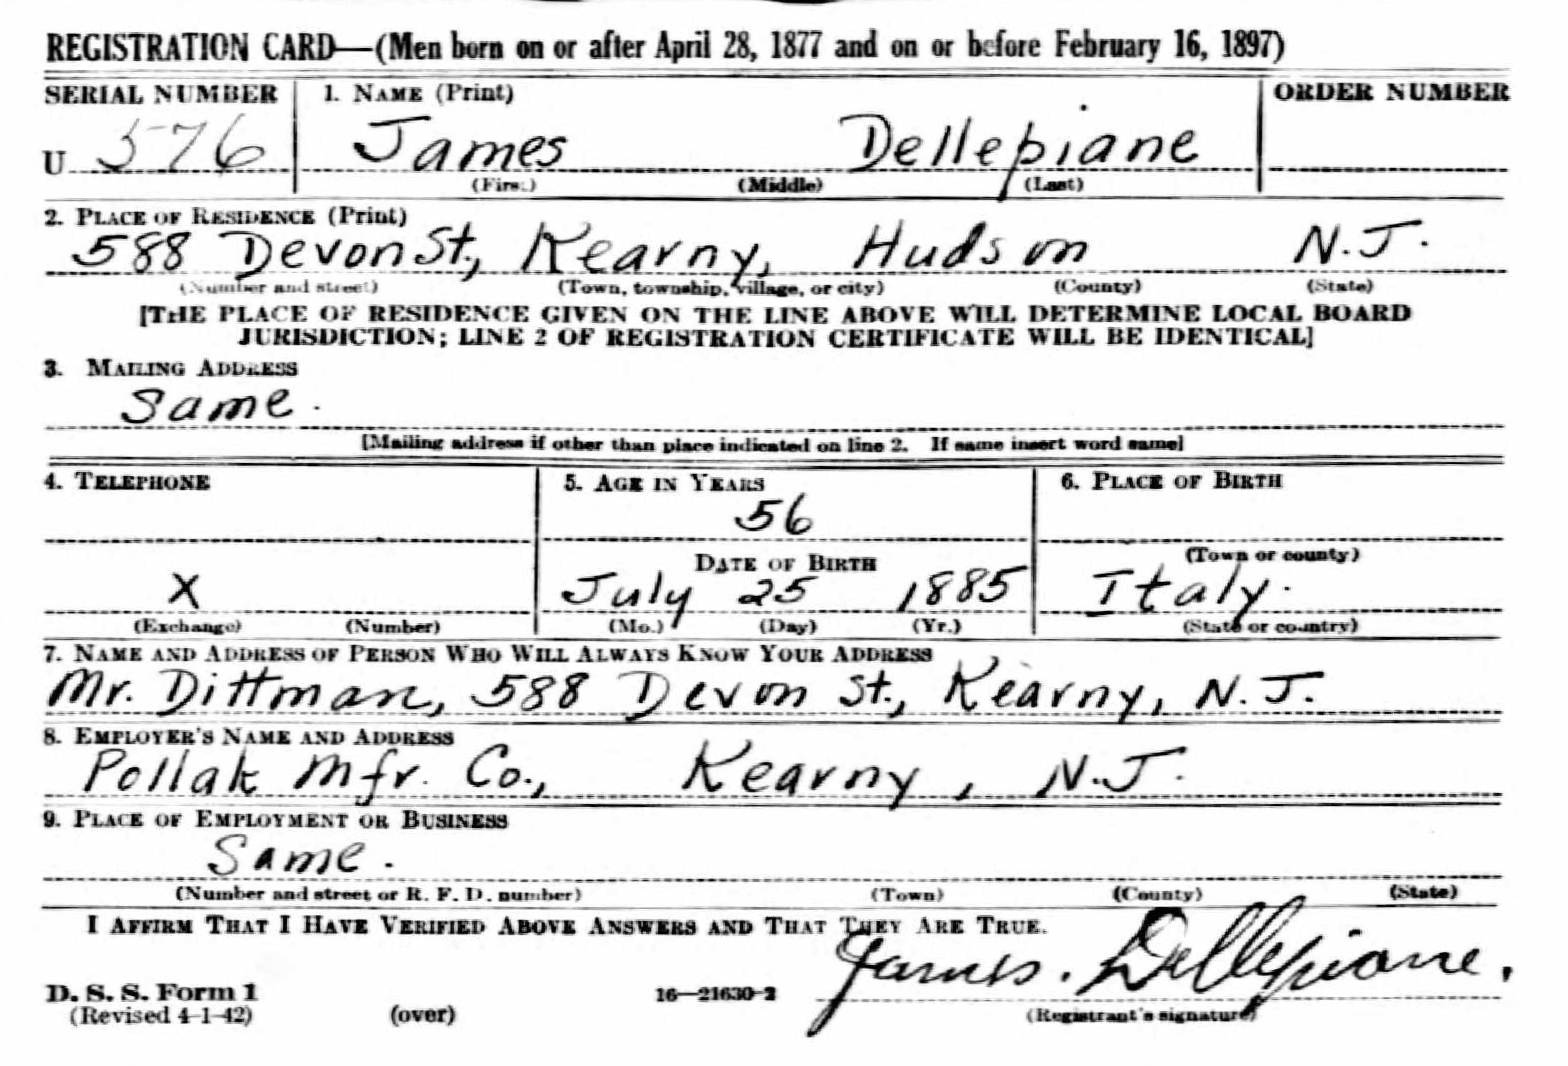 REGISTRATION CARD—(Men born on or after April 28, 1877 and on or before February 16, 1897)
SERIAL NUMBER 1. NAME (Print) ORDER NUMBER
U 576 James Dellepiane
(First) (Middle) (Last)
2. PLACE OF RESIDENCE (Print)
588 Devon St., Kearny, Hudson N.J.
(Number and street) (Town, township, village, or city) (County) (State)
[THE PLACE OF RESIDENCE GIVEN ON THE LINE ABOVE WILL DETERMINE LOCAL BOARD
JURISDICTION; LINE 2 OF REGISTRATION CERTIFICATE WILL BE IDENTICAL]
3. MAILING ADDRESS
Same.
[Mailing address if other than place indicated on line 2. If same insert word same]
4. TELEPHONE 5. AGE IN YEARS 6. PLACE OF BIRTH
56
DATE OF BIRTH (Town or county)
X July 25 1885 Italy.
(Exchange) (Number) (Mo.) (Day) (Yr.) (State or country)
7. NAME AND ADDRESS OF PERSON WHO WILL ALWAYS KNOW YOUR ADDRESS
Mr. Dittman, 588 Devon St., Kearny, N.J.
8. EMPLOYER'S NAME AND ADDRESS
Pollak Mfr. Co., Kearny, N.J.
9. PLACE OF EMPLOYMENT OR BUSINESS
Same.
(Number and street or R. F. D. number) (Town) (County) (State)
I AFFIRM THAT I HAVE VERIFIED ABOVE ANSWERS AND THAT THEY ARE TRUE.
James. Dellepiane.
D. S. S. Form 1 16—21630-2
(Revised 4-1-42) (over) (Registrant's signature)